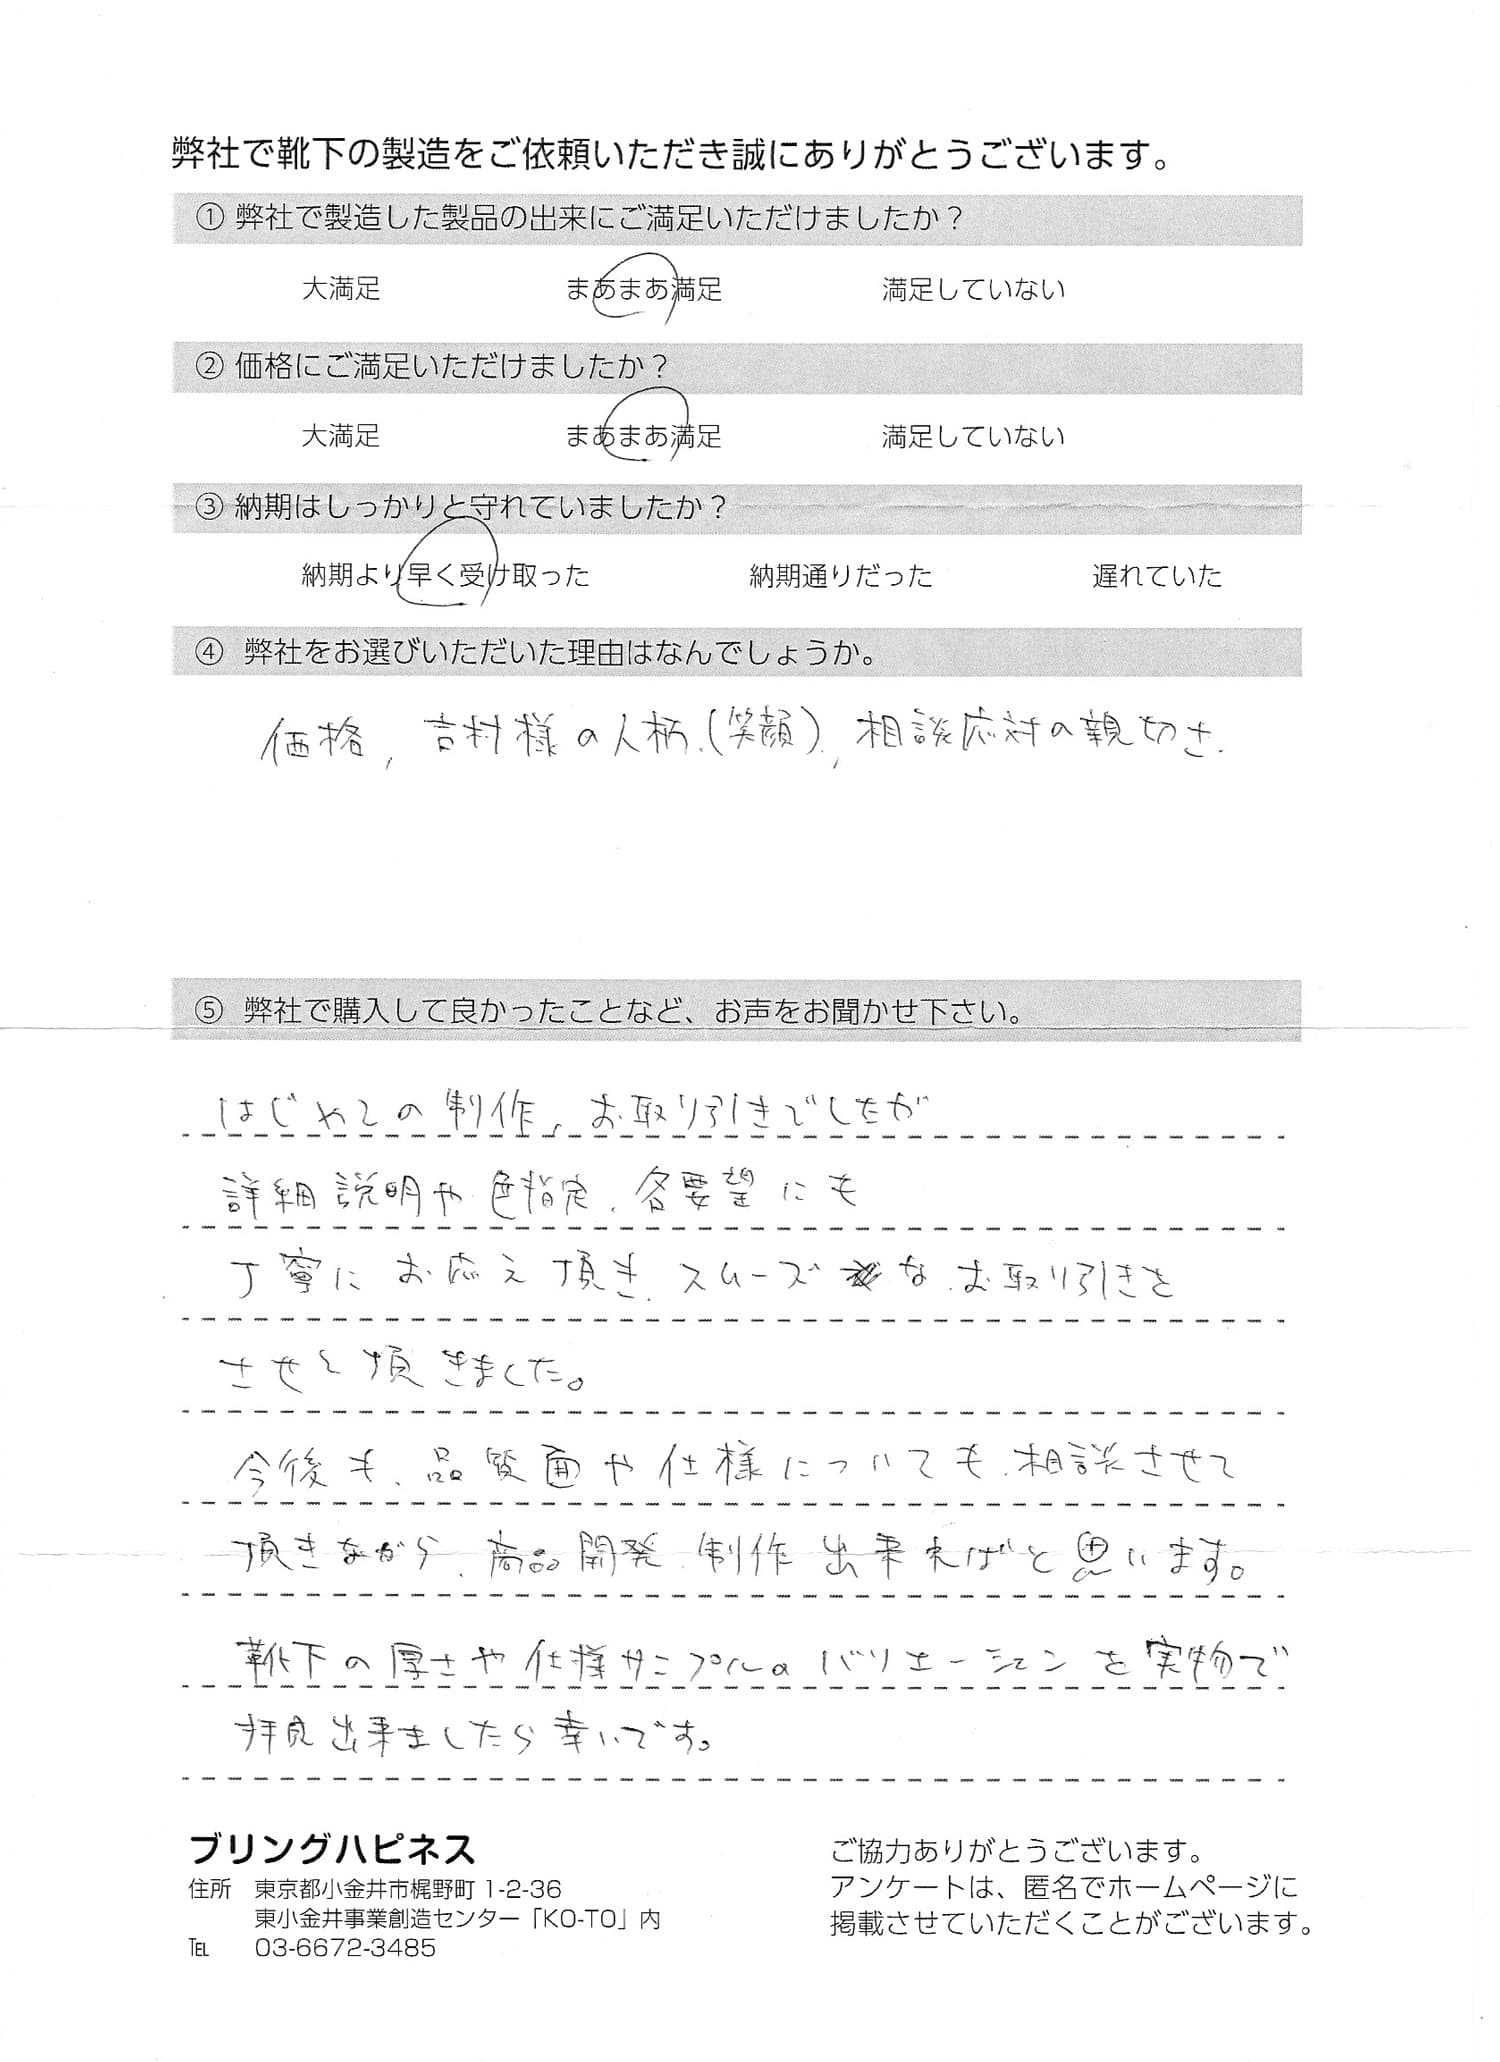 弊社で靴下の製造をご依頼いただき誠にありがとうございます。
① 弊社で製造した製品の出来にご満足いただけましたか？
大満足 まあまあ満足 満足していない
② 価格にご満足いただけましたか？
大満足 まあまあ満足 満足していない
③ 納期はしっかりと守れていましたか？
納期より早く受け取った 納期通りだった 遅れていた
④ 弊社をお選びいただいた理由はなんでしょうか。
価格, 吉村様の人柄.(笑顔), 相談応対の親切さ.
⑤ 弊社で購入して良かったことなど、お声をお聞かせ下さい。
はじめての制作、お取り引きでしたが
詳細説明や色指定、各要望にも
丁寧にお応え頂き、スムーズなお取り引きを
させて頂きました。
今後も、品質面や仕様についても、相談させて
頂きながら、商品開発、制作出来ればと思います。
靴下の厚さや仕様サンプルのバリエーションを実物で
拝見出来ましたら幸いです。
ブリングハピネス
住所 東京都小金井市梶野町 1-2-36
東小金井事業創造センター「KO-TO」内
℡ 03-6672-3485
ご協力ありがとうございます。
アンケートは、匿名でホームページに
掲載させていただくことがございます。